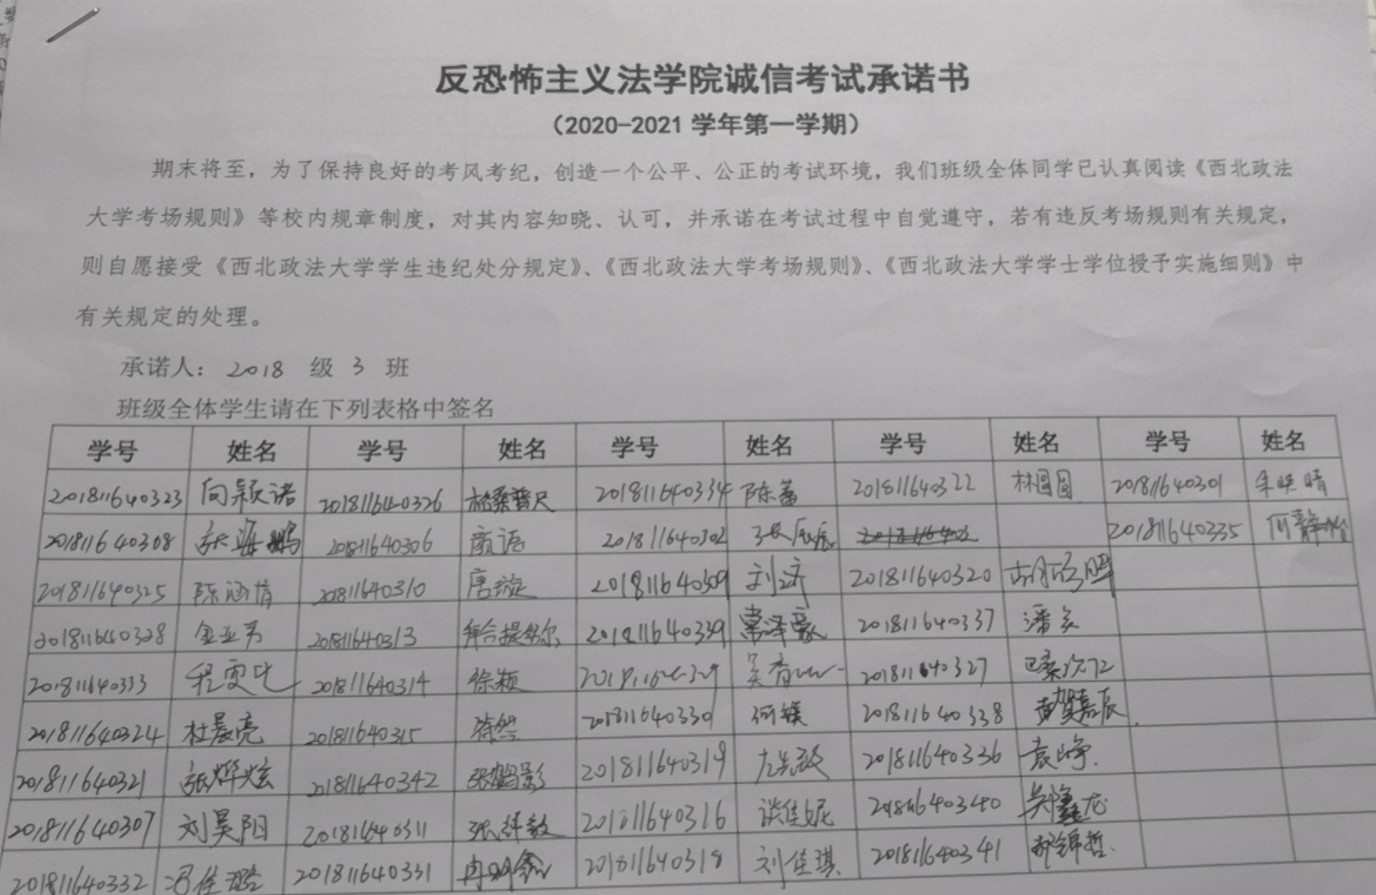 反恐怖主义法学院诚信考试承诺书
（2020-2021 学年第一学期）
期末将至，为了保持良好的考风考纪，创造一个公平、公正的考试环境，我们班级全体同学已认真阅读《西北政法
大学考场规则》等校内规章制度，对其内容知晓、认可，并承诺在考试过程中自觉遵守，若有违反考场规则有关规定，
则自愿接受《西北政法大学学生违纪处分规定》、《西北政法大学考场规则》、《西北政法大学学士学位授予实施细则》中
有关规定的处理。
承诺人：2018 级 3 班
班级全体学生请在下列表格中签名
学号 姓名 学号 姓名 学号 姓名 学号 姓名 学号 姓名
201811640323 向颖诺 201811640326 格桑普尺 201811640334 陈蕾 201811640322 林圆圆 201811640301
201811640308 张海鹏 201811640306 201811640302 201811640335
201811640325 陈涵倩 201811640310 唐璇 201811640309 刘济 201811640320
201811640328 201811640313 201811640339 201811640337 潘
201811640333 程雯 201811640314 徐颖 201811640327
201811640324 杜晨亮 201811640315 201811640330 何媛 201811640338 黄贺嘉辰
201811640321 张烨炫 201811640342 张鹤影 201811640319 201811640336 袁峥
201811640307 刘昊阳 201811640311 201811640316 谈佳妮 201811640340
201811640332 冯佳璐 201811640331 冉 201811640318 刘佳琪 201811640341 郝锦哲